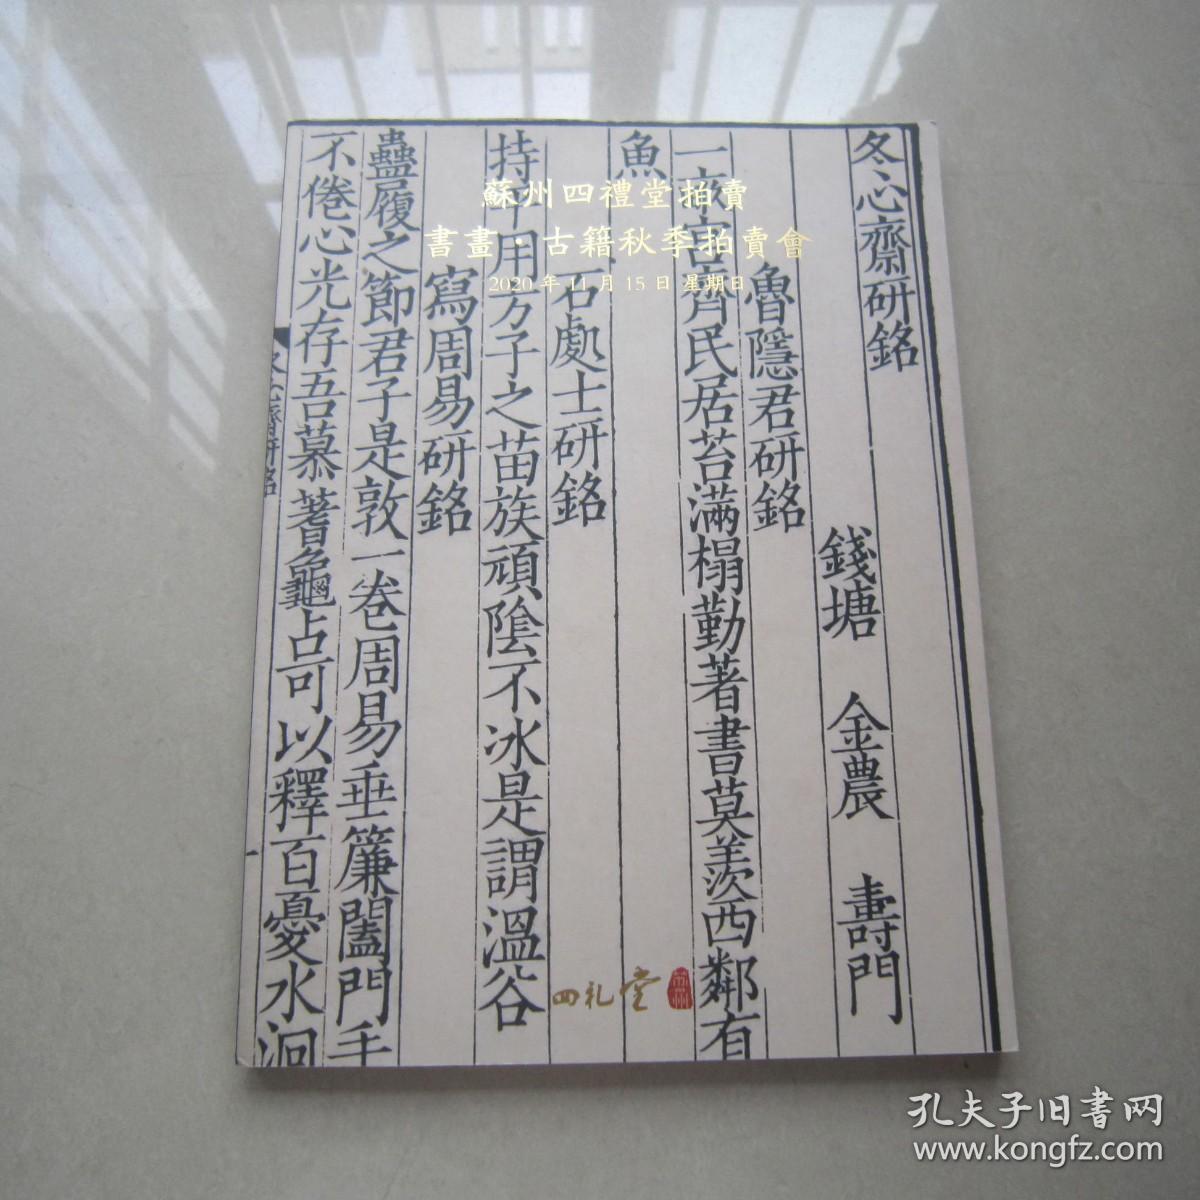 蘇州四禮堂拍賣
書畫·古籍秋季拍賣會
2020年11月15日 星期日
冬心齋研銘
錢塘 金農 壽門
魯隱君研銘
一宮齊民居苔滿榻勤著書莫羨西鄰有
魚
石處士研銘
持用方子之苗族頑陰不冰是謂溫谷
寫周易研銘
蠱履之節君子是敦一卷周易垂簾闔門手
不倦心光存吾慕蓍龜占可以釋百憂水洞
四礼堂
苏州
孔夫子旧书网
www.kongfz.com